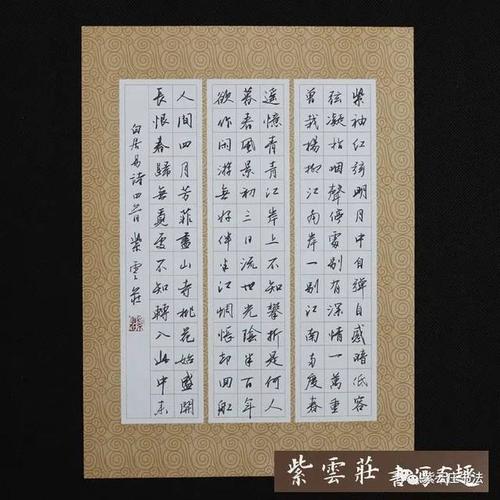 紫袖紅弦明月中自彈自感暗低容
弦凝指咽聲停處别有深情一萬重
曾栽楊柳江南岸一别江南两度春
遥憶青青江岸上不知攀折是何人
暮春風景初三日流世光陰半百年
欲作閒游無好伴半江惆悵却回船
人間四月芳菲盡山寺桃花始盛開
長恨春歸無覓處不知轉入此中来
白居易诗四首 紫雲莊
紫雲莊 書写有趣
紫云庄书法